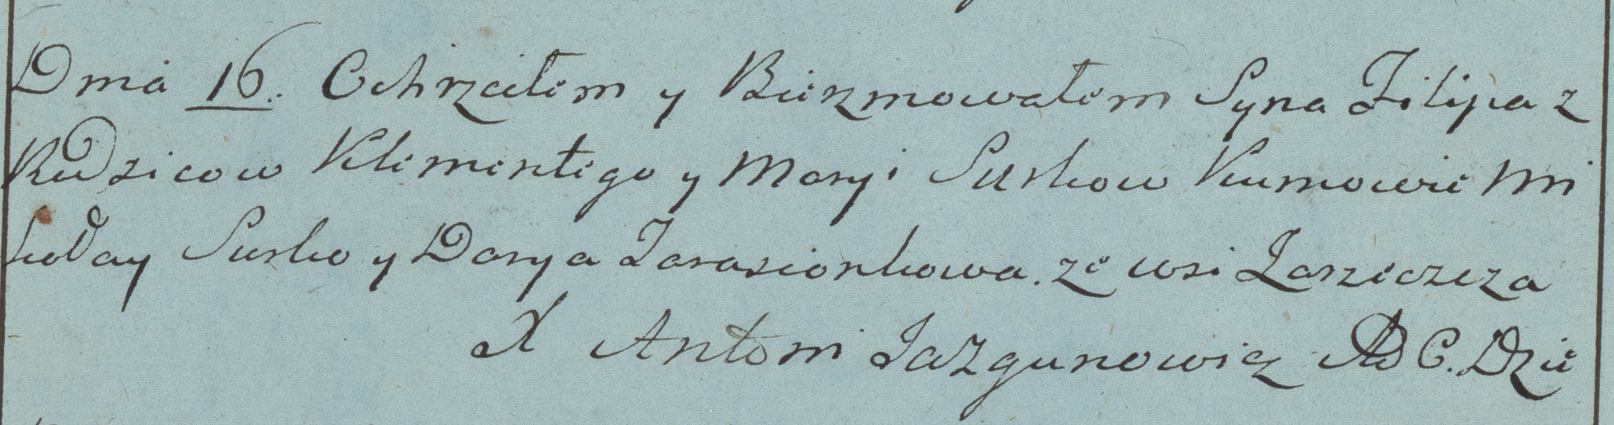 Dnia 16. Ochrzciłem y Bierzmowałem Syna Filipa z
Rodzicow Klimentego y Maryi Suszkow Kumowie Mi
kołay Suszko y Darya Tarasionkowa. ze wsi Zarzecza
X Antoni Jazgunowicz AD C. Dzie